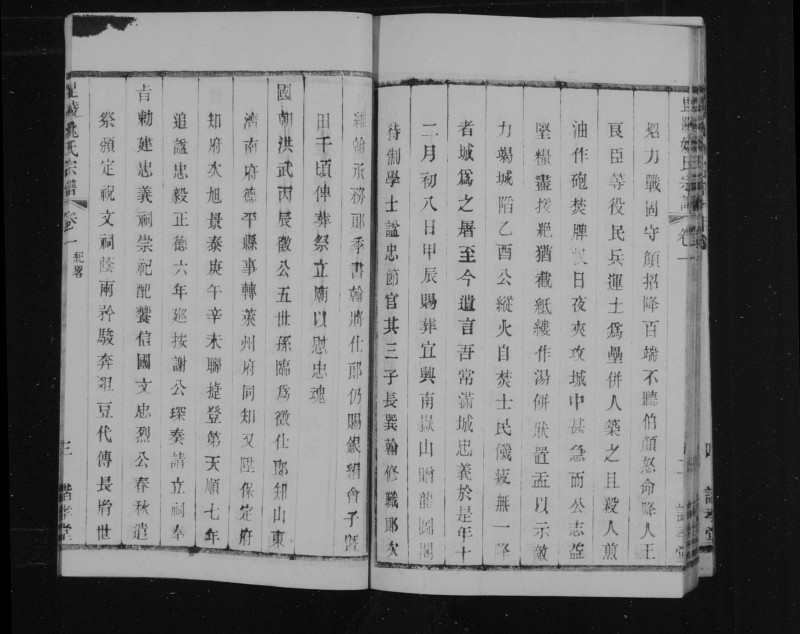 毘陵姚氏宗譜 卷一
炤力戰固守顏招降百端不聽伯顏怒命降人王
良臣等役民兵運土為壘併人築之且殺人煎
油作砲焚牌杈日夜夾攻城中甚急而公志益
堅糧盡援絕猶截紙縷作湯併狀置盂以示敵
力竭城陷乙酉公縱火自焚士民饑疲無一降
者城為之屠至今遺言吾常滿城忠義於是年十
二月初八日甲辰賜葬宜興南嶽山贈龍圖閣
待制學士謚忠節官其三子長巽翰修職郎次
維翰承務郎季書翰將仕郎仍賜銀絹會子暨
田千頃傳葬祭立廟以慰忠魂
國朝洪武丙辰徵公五世孫臨為徵仕郎知山東
濟南府德平縣事轉萊州府同知又陞保定府
知府次旭景泰庚午辛未聯捷登第天順七年
追謚忠毅正德六年巡按謝公琛奏請立祠奉
旨勅建忠義祠崇祀配饗信國文忠烈公春秋遣
祭頒定祝文祠蔭兩衿駿奔俎豆代傳長房世
毘陵姚氏宗譜 卷一 紀畧 三 諧孝堂